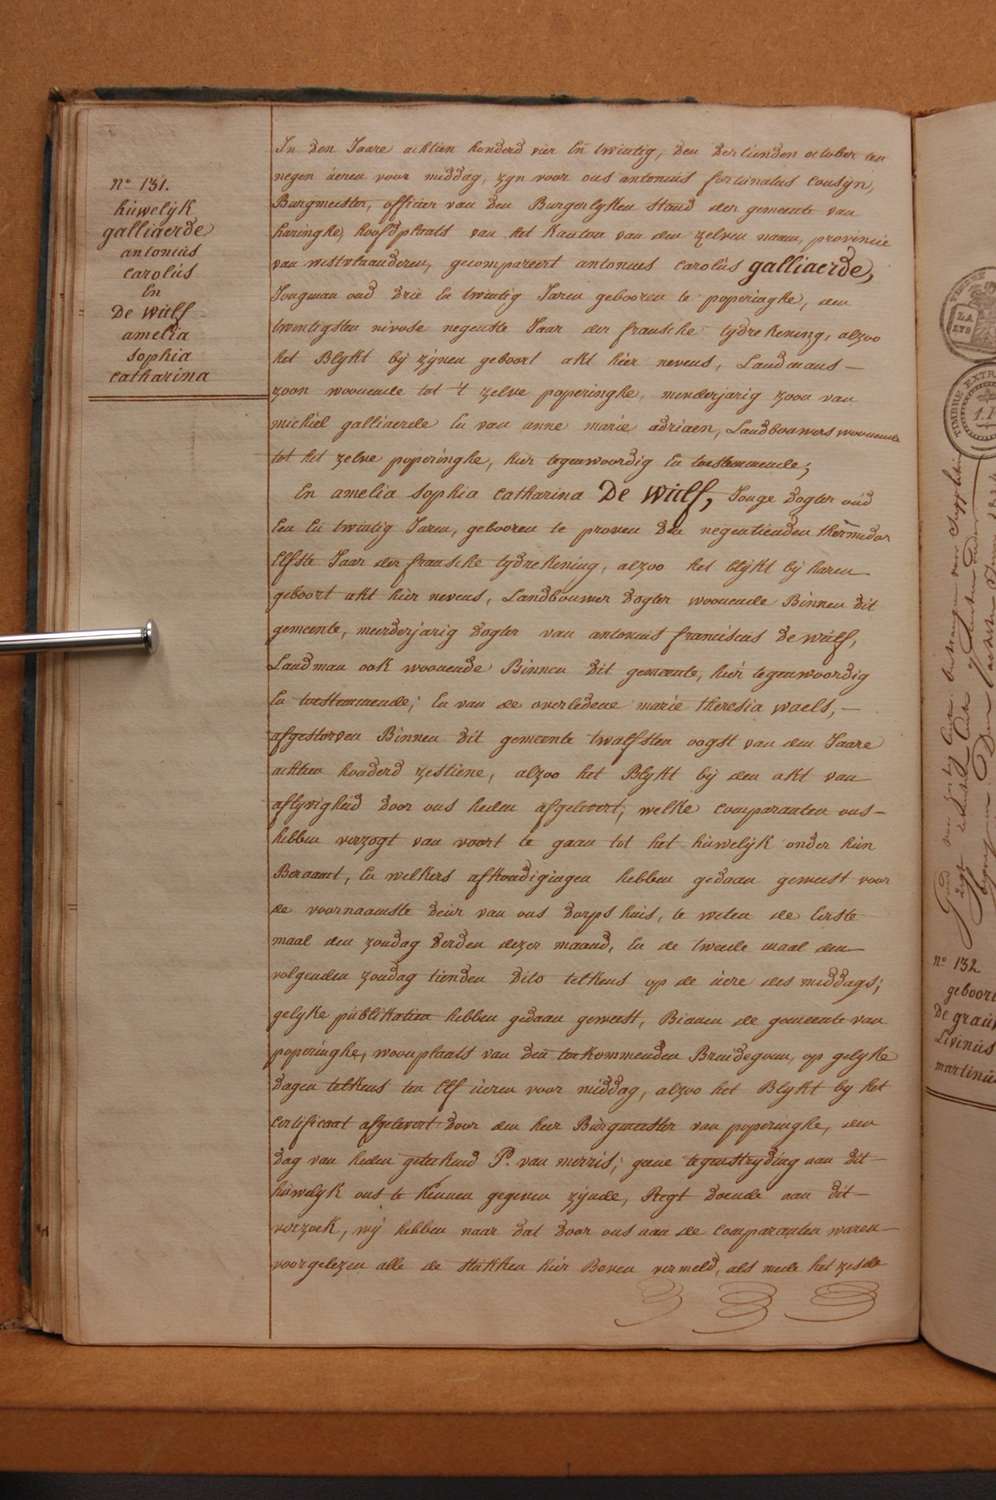 N.º 131.
hùwelijk
galliaerde
antoniùs
carolùs
En
De Wùlf
amelia
sophia
catharina
In den Jaare achtien honderd vier En twintig, den dertienden october ten
negen ùeren voor middag, zyn voor ons antoniùs fortùnatùs Coùsyn,
Bùrgmeester, officier van den Burgerlyken stand der gemeente van
haringhe, hoofdplaats van het Kanton van den zelven naam, provincie
van westvlaanderen, gecompareert antoniùs carolùs galliaerde,
Jongman oud drie En twintig Jaren gebooren te poperinghe, den
twintigsten nivose negenste Jaar der fransche tydrekening, alzoo
het Blykt bij zijnen geboort akt hier nevens, Landmans—
zoon woonende tot 't zelve poperinghe, minderjarig zoon van
michiel galliaerde En van anne marie adriaen, Landbouwers woonende
tot het zelve poperinghe, hier tegenwoordig En toestemmende;
En amelia sophia catharina De Wùlf, Jonge dogter oùd
Een En twintig Jaren, gebooren te proven den negentienden thermidor
Elfste Jaar der fransche tydrekening, alzoo het blijkt bij haren
geboort akt hier nevens, Landbouwer dogter woonende Binnen dit
gemeente, meerderjarig dogter van antoniùs franciscùs De wùlf,
Landman ook woonende Binnen dit gemeente, hier tegenwoordig
En toestemmende; En van de overledene marie theresia waels,—
afgestorven Binnen dit gemeente twalfsten oogst van den Jaare
achtien honderd zestiene, alzoo het Blykt bij den akt van
aflyvigheid door ons heden afgelevert; welke comparanten ons—
hebben verzogt van voort te gaan tot het hùwelijk onder hùn
Beraamt, En welkers afkondigingen hebben gedaan geweest voor
de voornaamste deùr van ons dorps huis, te weten de Eerste
maal den zondag derden dezer maand, En de tweede maal den
volgenden zondag tienden dito telkens op de ùere des middags;
gelyke pùblikatien hebben gedaan geweest, Binnen de gemeente van
poperinghe, woonplaats van den toekommenden Bruidegom, op gelyke
dagen telkens ten Elf ùeren voor middag, alzoo het Blykt by het
certificaat afgelevert door den heer Bùrgmeester van poperinghe, den
dag van heden geteekend P. van merris; geene tegenstryding aan dit—
hùwelyk ons te kennen gegeven zijnde, Regt doende aan dit—
verzoek, wij hebben naar dat door ons aan de comparanten waren—
voorgelezen alle de stukken hier Boven vermeld, als mede het zesde
TIMBRE EXTRA
N.º 132
geboort
De graùw
Livinùs
martinùs